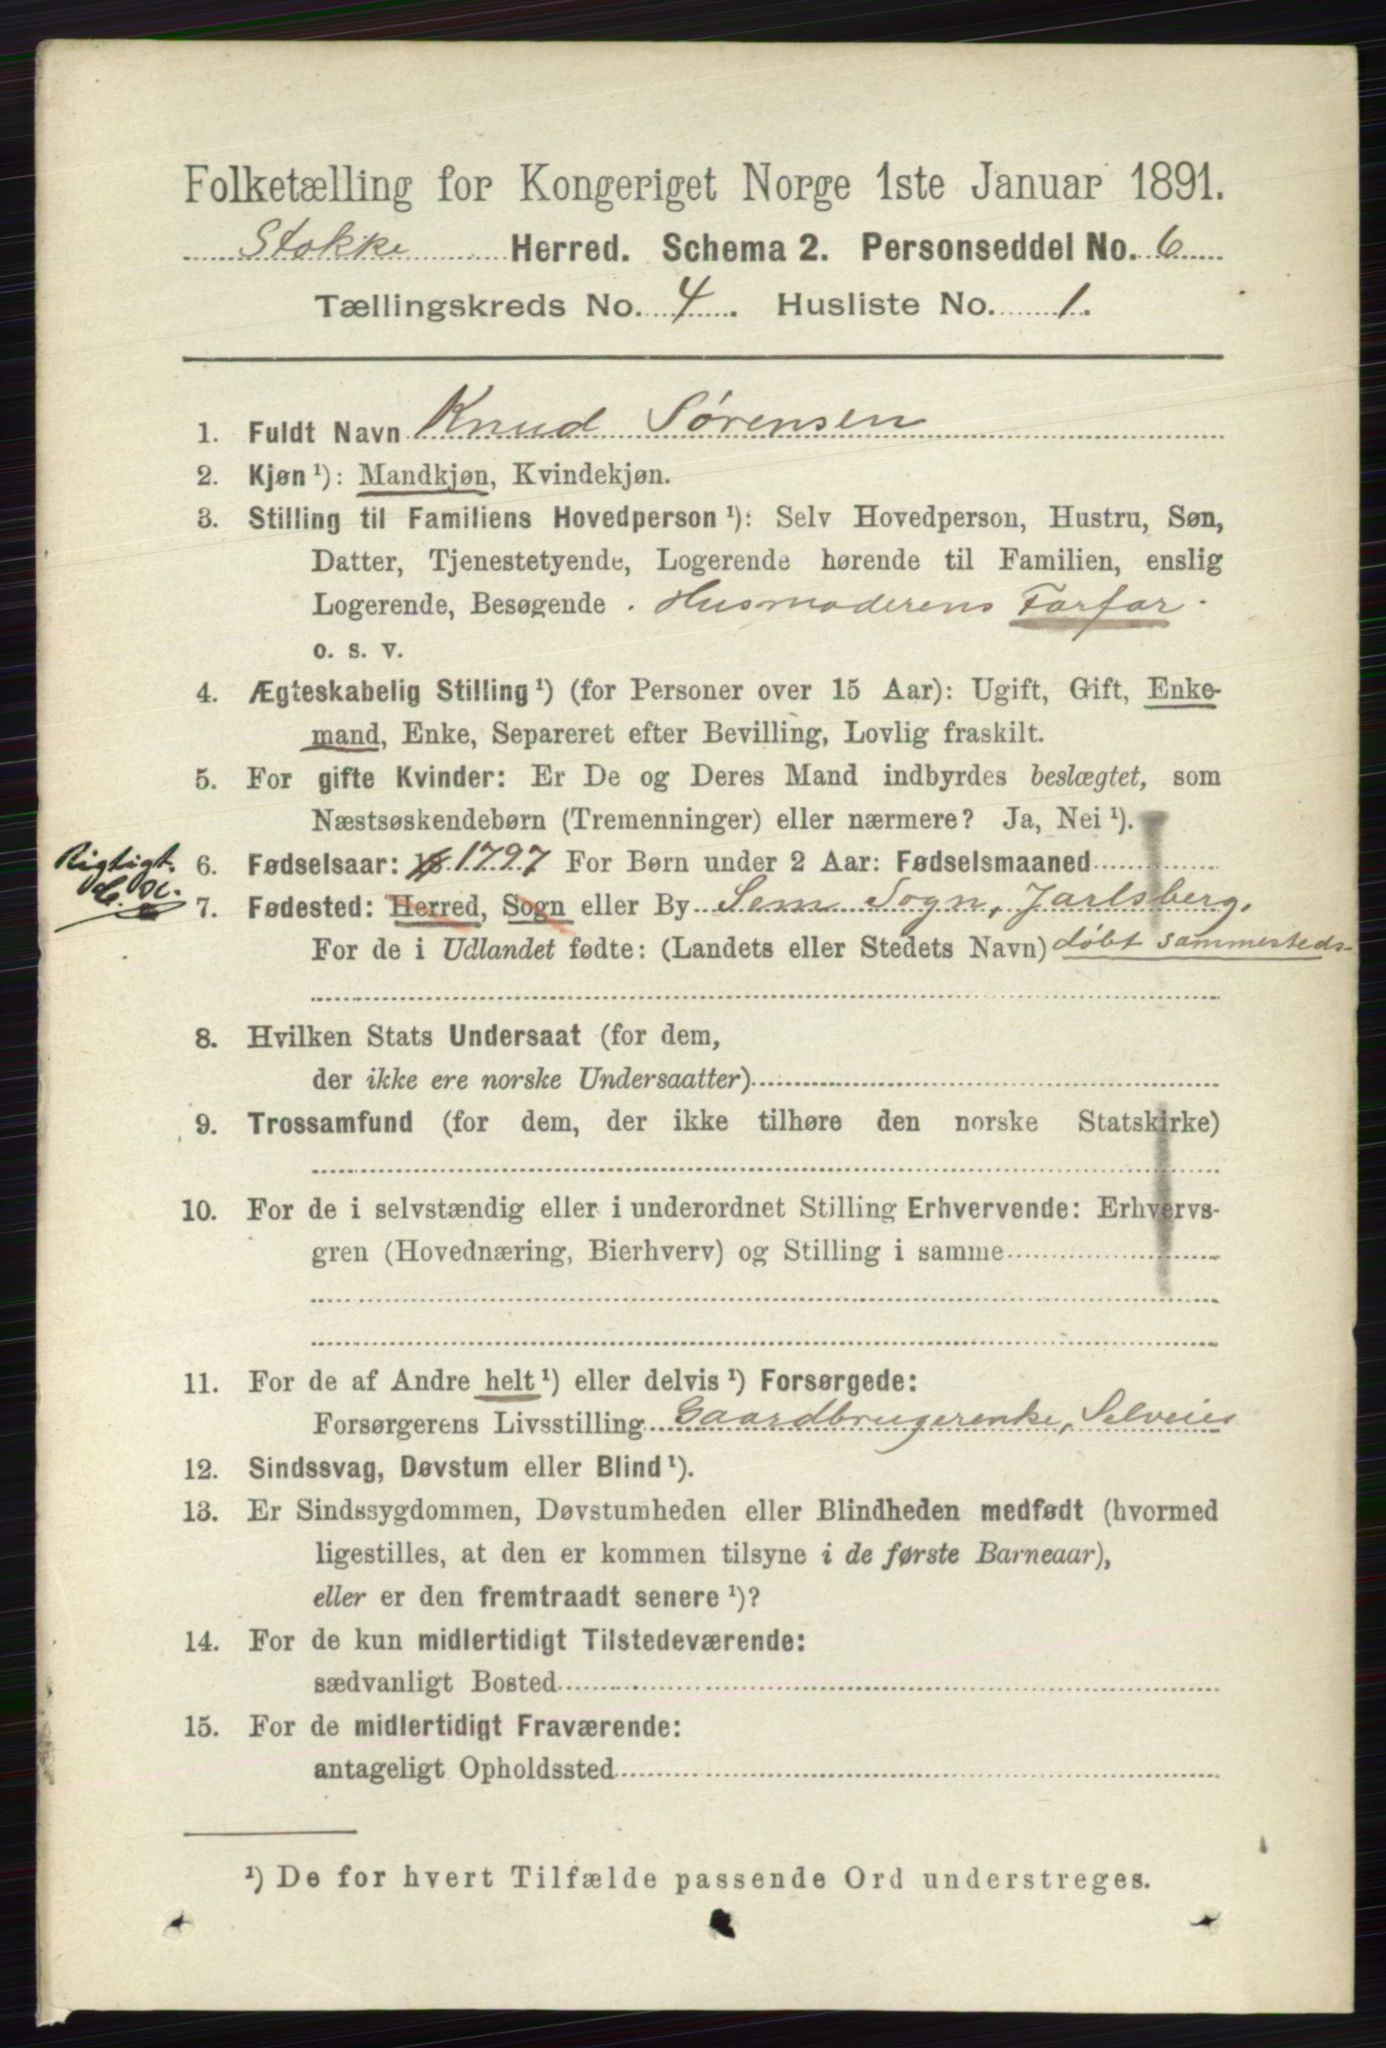 Folketælling for Kongeriget Norge 1ste Januar 1891.
Stokke Herred. Schema 2. Personseddel No. 6
Tællingskreds No. 4. Husliste No. 1.
1. Fuldt Navn Knud Sørensen
2. Kjøn¹): Mandkjøn, Kvindekjøn.
3. Stilling til Familiens Hovedperson¹): Selv Hovedperson, Hustru, Søn,
Datter, Tjenestetyende, Logerende hørende til Familien, enslig
Logerende, Besøgende . Husmoderens Farfar.
o. s. v.
4. Ægteskabelig Stilling¹) (for Personer over 15 Aar): Ugift, Gift, Enke-
mand, Enke, Separeret efter Bevilling, Lovlig fraskilt.
5. For gifte Kvinder: Er De og Deres Mand indbyrdes beslægtet, som
Næstsøskendebørn (Tremenninger) eller nærmere? Ja, Nei¹).
Rigtigt.
6. Fødselsaar: 18 1797 For Børn under 2 Aar: Fødselsmaaned
7. Fødested: Herred, Sogn eller By Sem Sogn, Jarlsberg,
For de i Udlandet fødte: (Landets eller Stedets Navn) døbt sammesteds
8. Hvilken Stats Undersaat (for dem,
der ikke ere norske Undersaatter)
9. Trossamfund (for dem, der ikke tilhøre den norske Statskirke)
10. For de i selvstændig eller i underordnet Stilling Erhvervende: Erhvervs-
gren (Hovednæring, Bierhverv) og Stilling i samme
11. For de af Andre helt¹) eller delvis¹) Forsørgede:
Forsørgerens Livsstilling Gaardbrugerenke, Selveier
12. Sindssvag, Døvstum eller Blind¹).
13. Er Sindssygdommen, Døvstumheden eller Blindheden medfødt (hvormed
ligestilles, at den er kommen tilsyne i de første Barneaar),
eller er den fremtraadt senere¹)?
14. For de kun midlertidigt Tilstedeværende:
sædvanligt Bosted
15. For de midlertidigt Fraværende:
antageligt Opholdssted
¹) De for hvert Tilfælde passende Ord understreges.